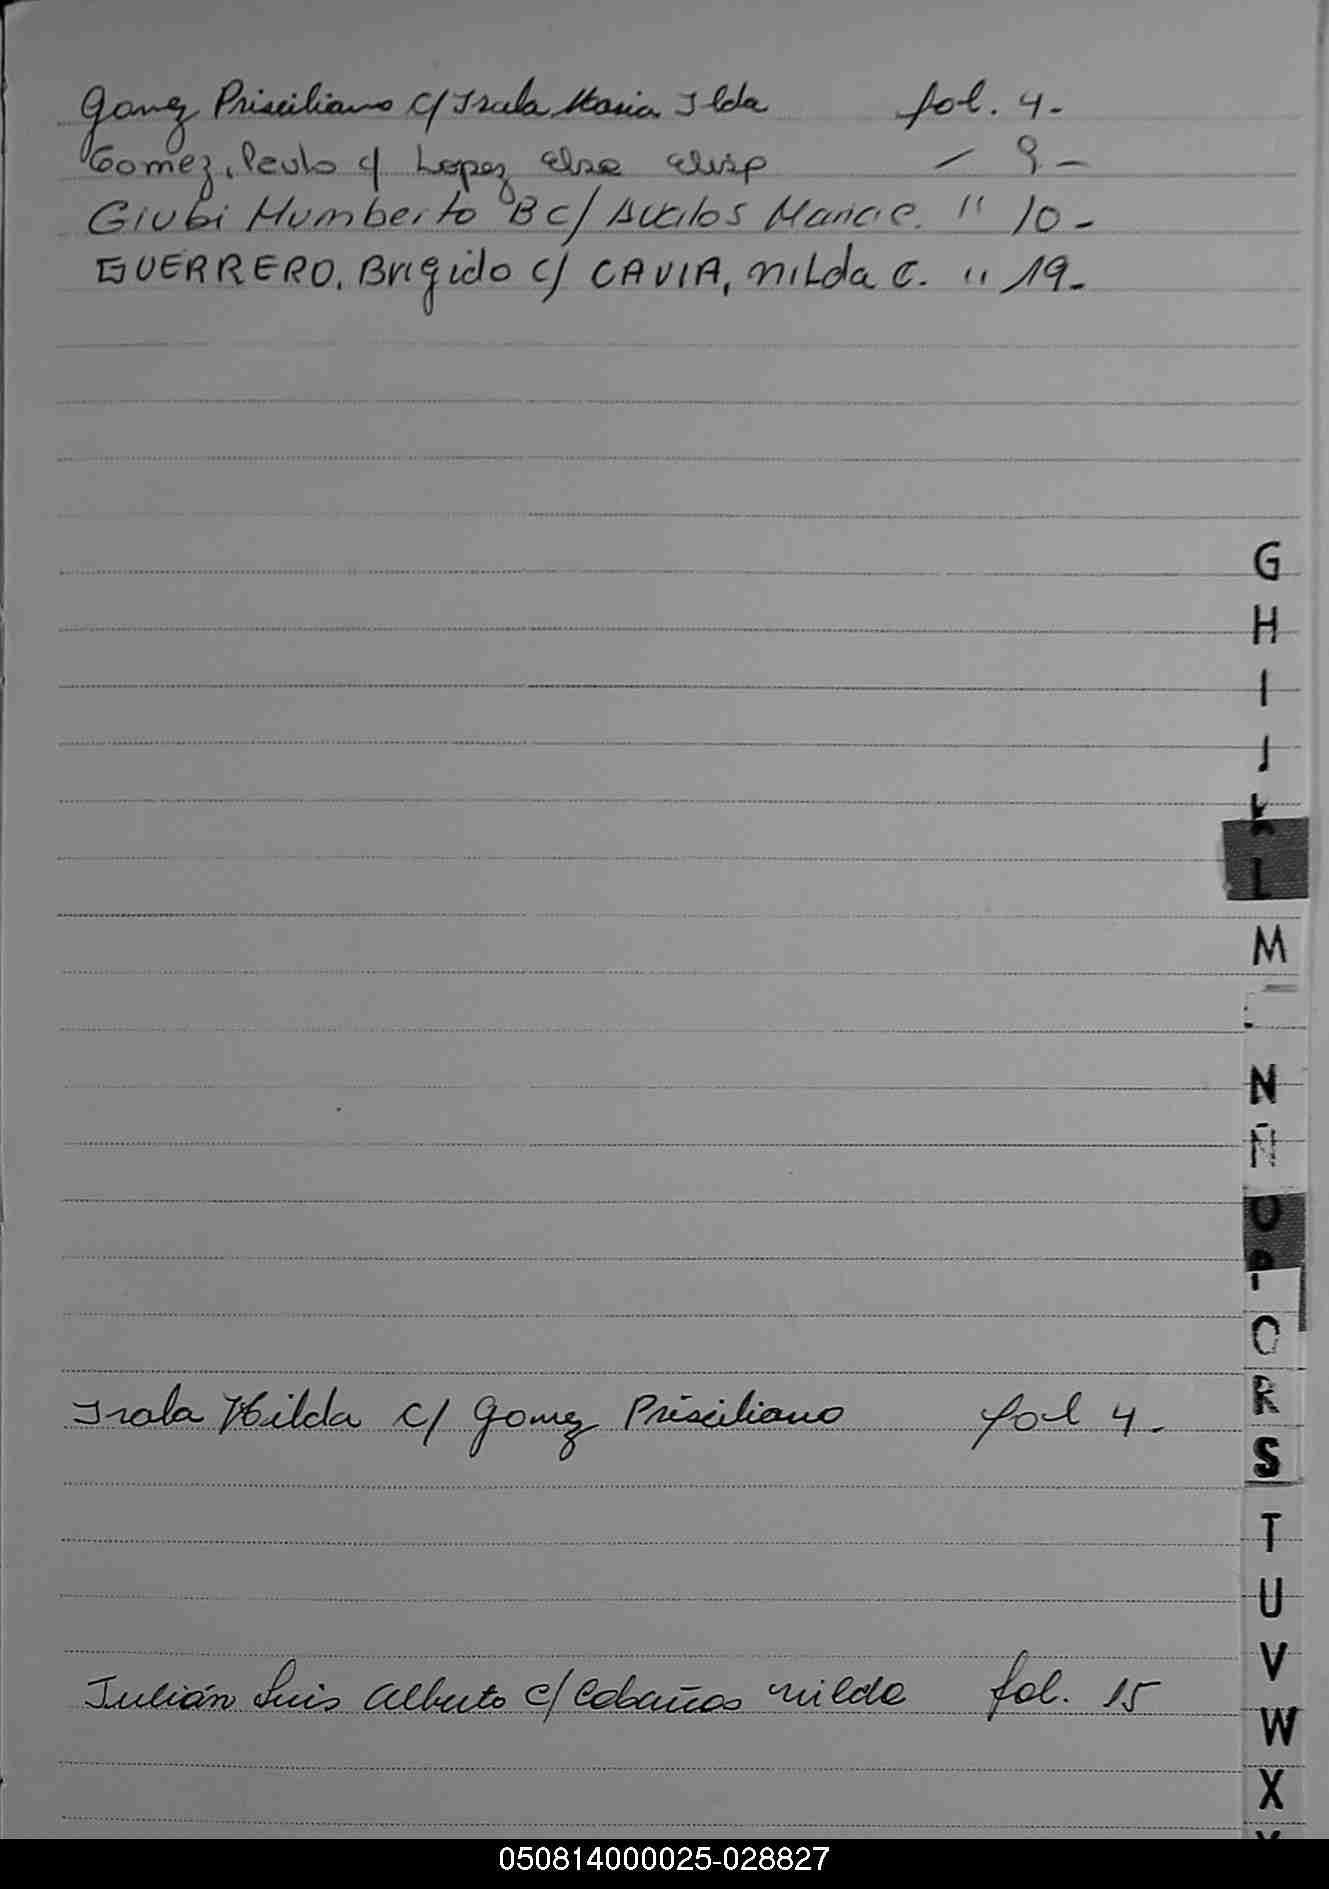 Gomez Prisciliano c/ Irala Maria Ilda fol. 4.
Gomez, Paulo c/ Lopez Elsa — 9 —
Giubi Humberto B c/ Avalos Maria e. " 10 -
GUERRERO, Brigido c/ CAVIA, nilda C. " 19.
G
H
I
J
K
L
M
N
Ñ
O
P
R
S
T
U
V
W
X
Irala Hilda c/ Gomez Prisciliano fol 4.
Julián Luis Alberto c/ Cabañas nilda fol. 15
050814000025-028827